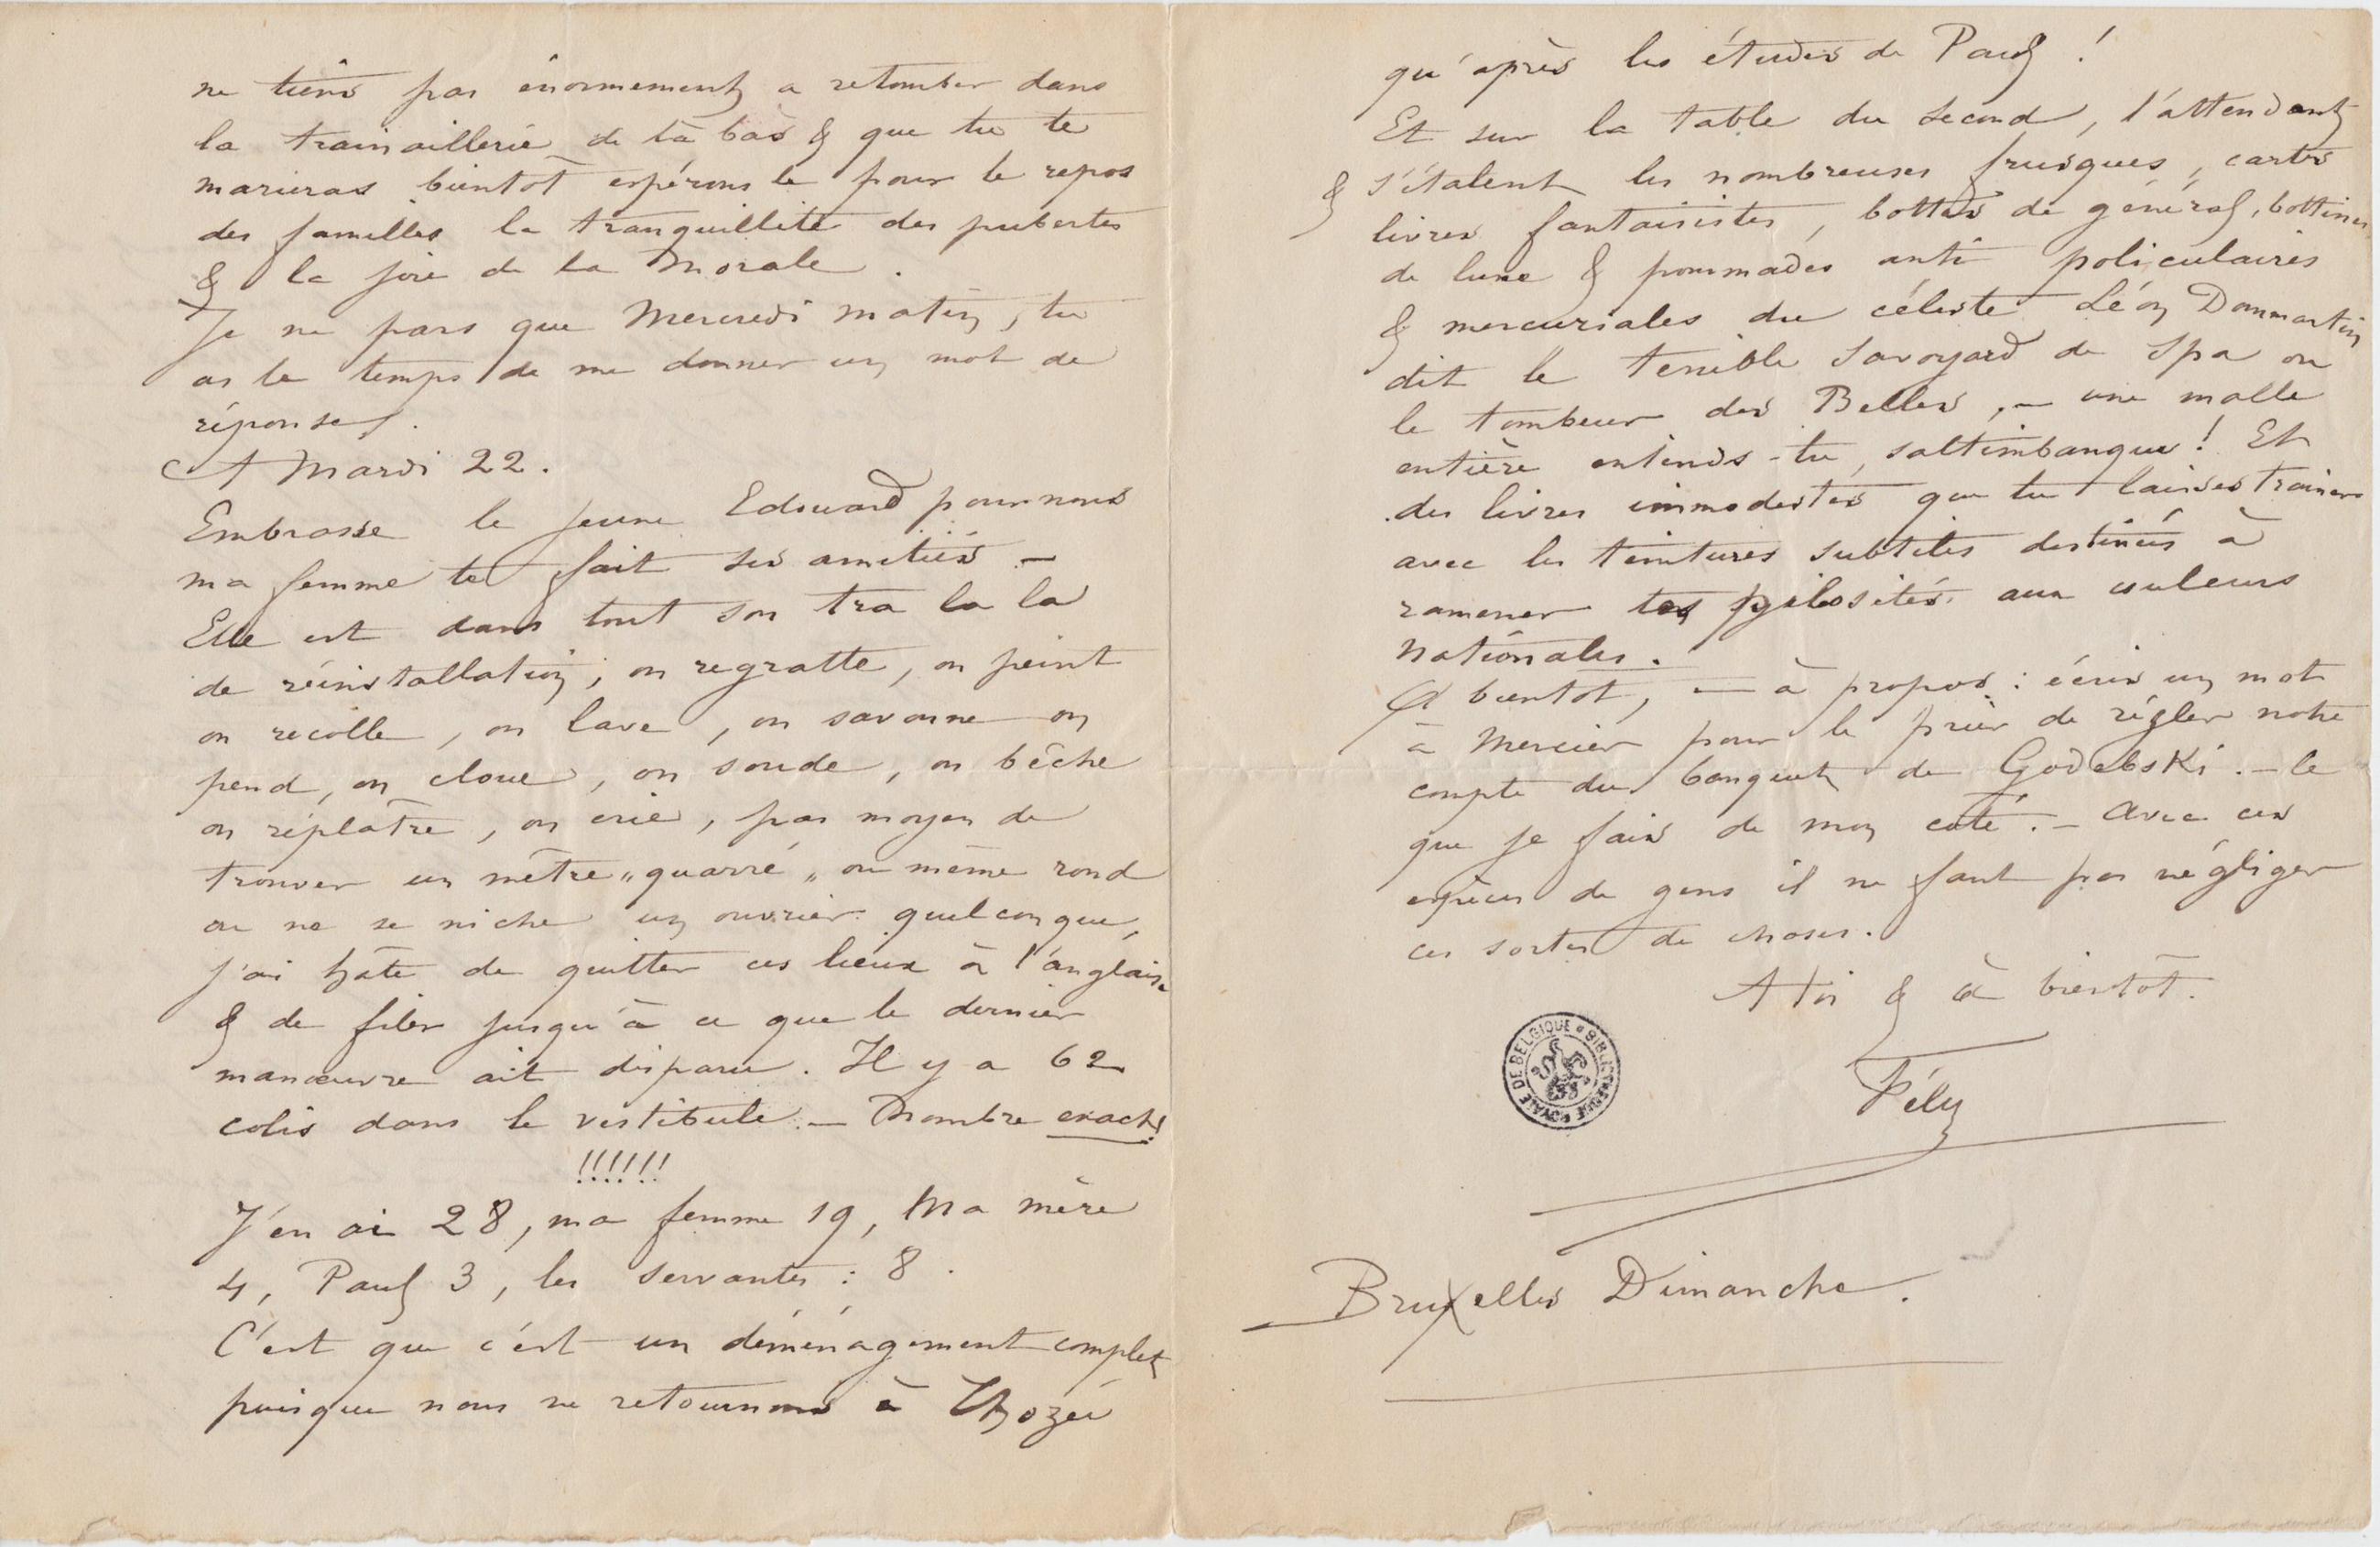 ne tiens pas énormement a retomber dans
la trainaillerie de là bas & que tu te
marieras bientot espérons le pour le repos
des familles la tranquillité des pubertes
& la joie de la Morale.
Je ne pars que Mercredi matin, tu
as le temps de me donner un mot de
réponse.
A Mardi 22.
Embrasse le jeune Edouard pour nous
ma femme te fait ses amitiés –
Elle est dans tout son tra la la
de réinstallation; on regratte, on peint
on recolle, on lave, on savonne on
pend, on cloue, on soude, on bêche
on réplatre, on crie, pas moyen de
trouver un mètre „quarré„ ou même rond
ou ne se niche un ouvrier quelconque,
j'ai hâte de quitter ces lieux à l'anglaise
& de filer jusqu'à ce que le dernier
manœuvre ait disparu. Il y a 62
colis dans le vestibule. – Nombre exact!
!!!!!!
J'en ai 28, ma femme 19, Ma mère
4, Paul 3, les servantes : 8.
C'est que c'est un déménagement complet
puisque nous ne retournons à Thozée
qu'après les études de Paul !
Et sur la table du second, l'attendant
& s'étalent les nombreuses frusques, cartes
livres fantaisistes, bottes de général, bottines
de lune & pommades anti policulaires
& mercuriales du céleste Léon Dommartin
dit le terrible Savoyard de Spa ou
le tombeur des Belles, – une malle
entière entends-tu, saltimbanque ! Et
des livres immodestes que tu laisses trainer
avec les teintures subtiles destinées à
ramener tes pilosités aux couleurs
Nationales.
A bientot, – à propos : écris un mot
à Mercier pour le prier de régler notre
compte du banquet de Godebski. – ce
que je fais de mon coté. – Avec ces
espèces de gens il ne faut pas négliger
ces sortes de choses.
A toi & à bientôt.
Fély
BIBLIOTHEQUE ROYALE DE BELGIQUE
Bruxelles Dimanche.